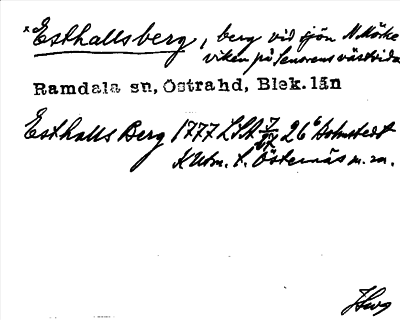 x Esthallsberg, berg vid sjön N. Mörke
viken på Senorens västsida
Ramdala sn, Östrahd, Blek. län
Esthalls Berg 1777 LSA 26 Holmstedt
K Utm. t. Östernäs m. m.